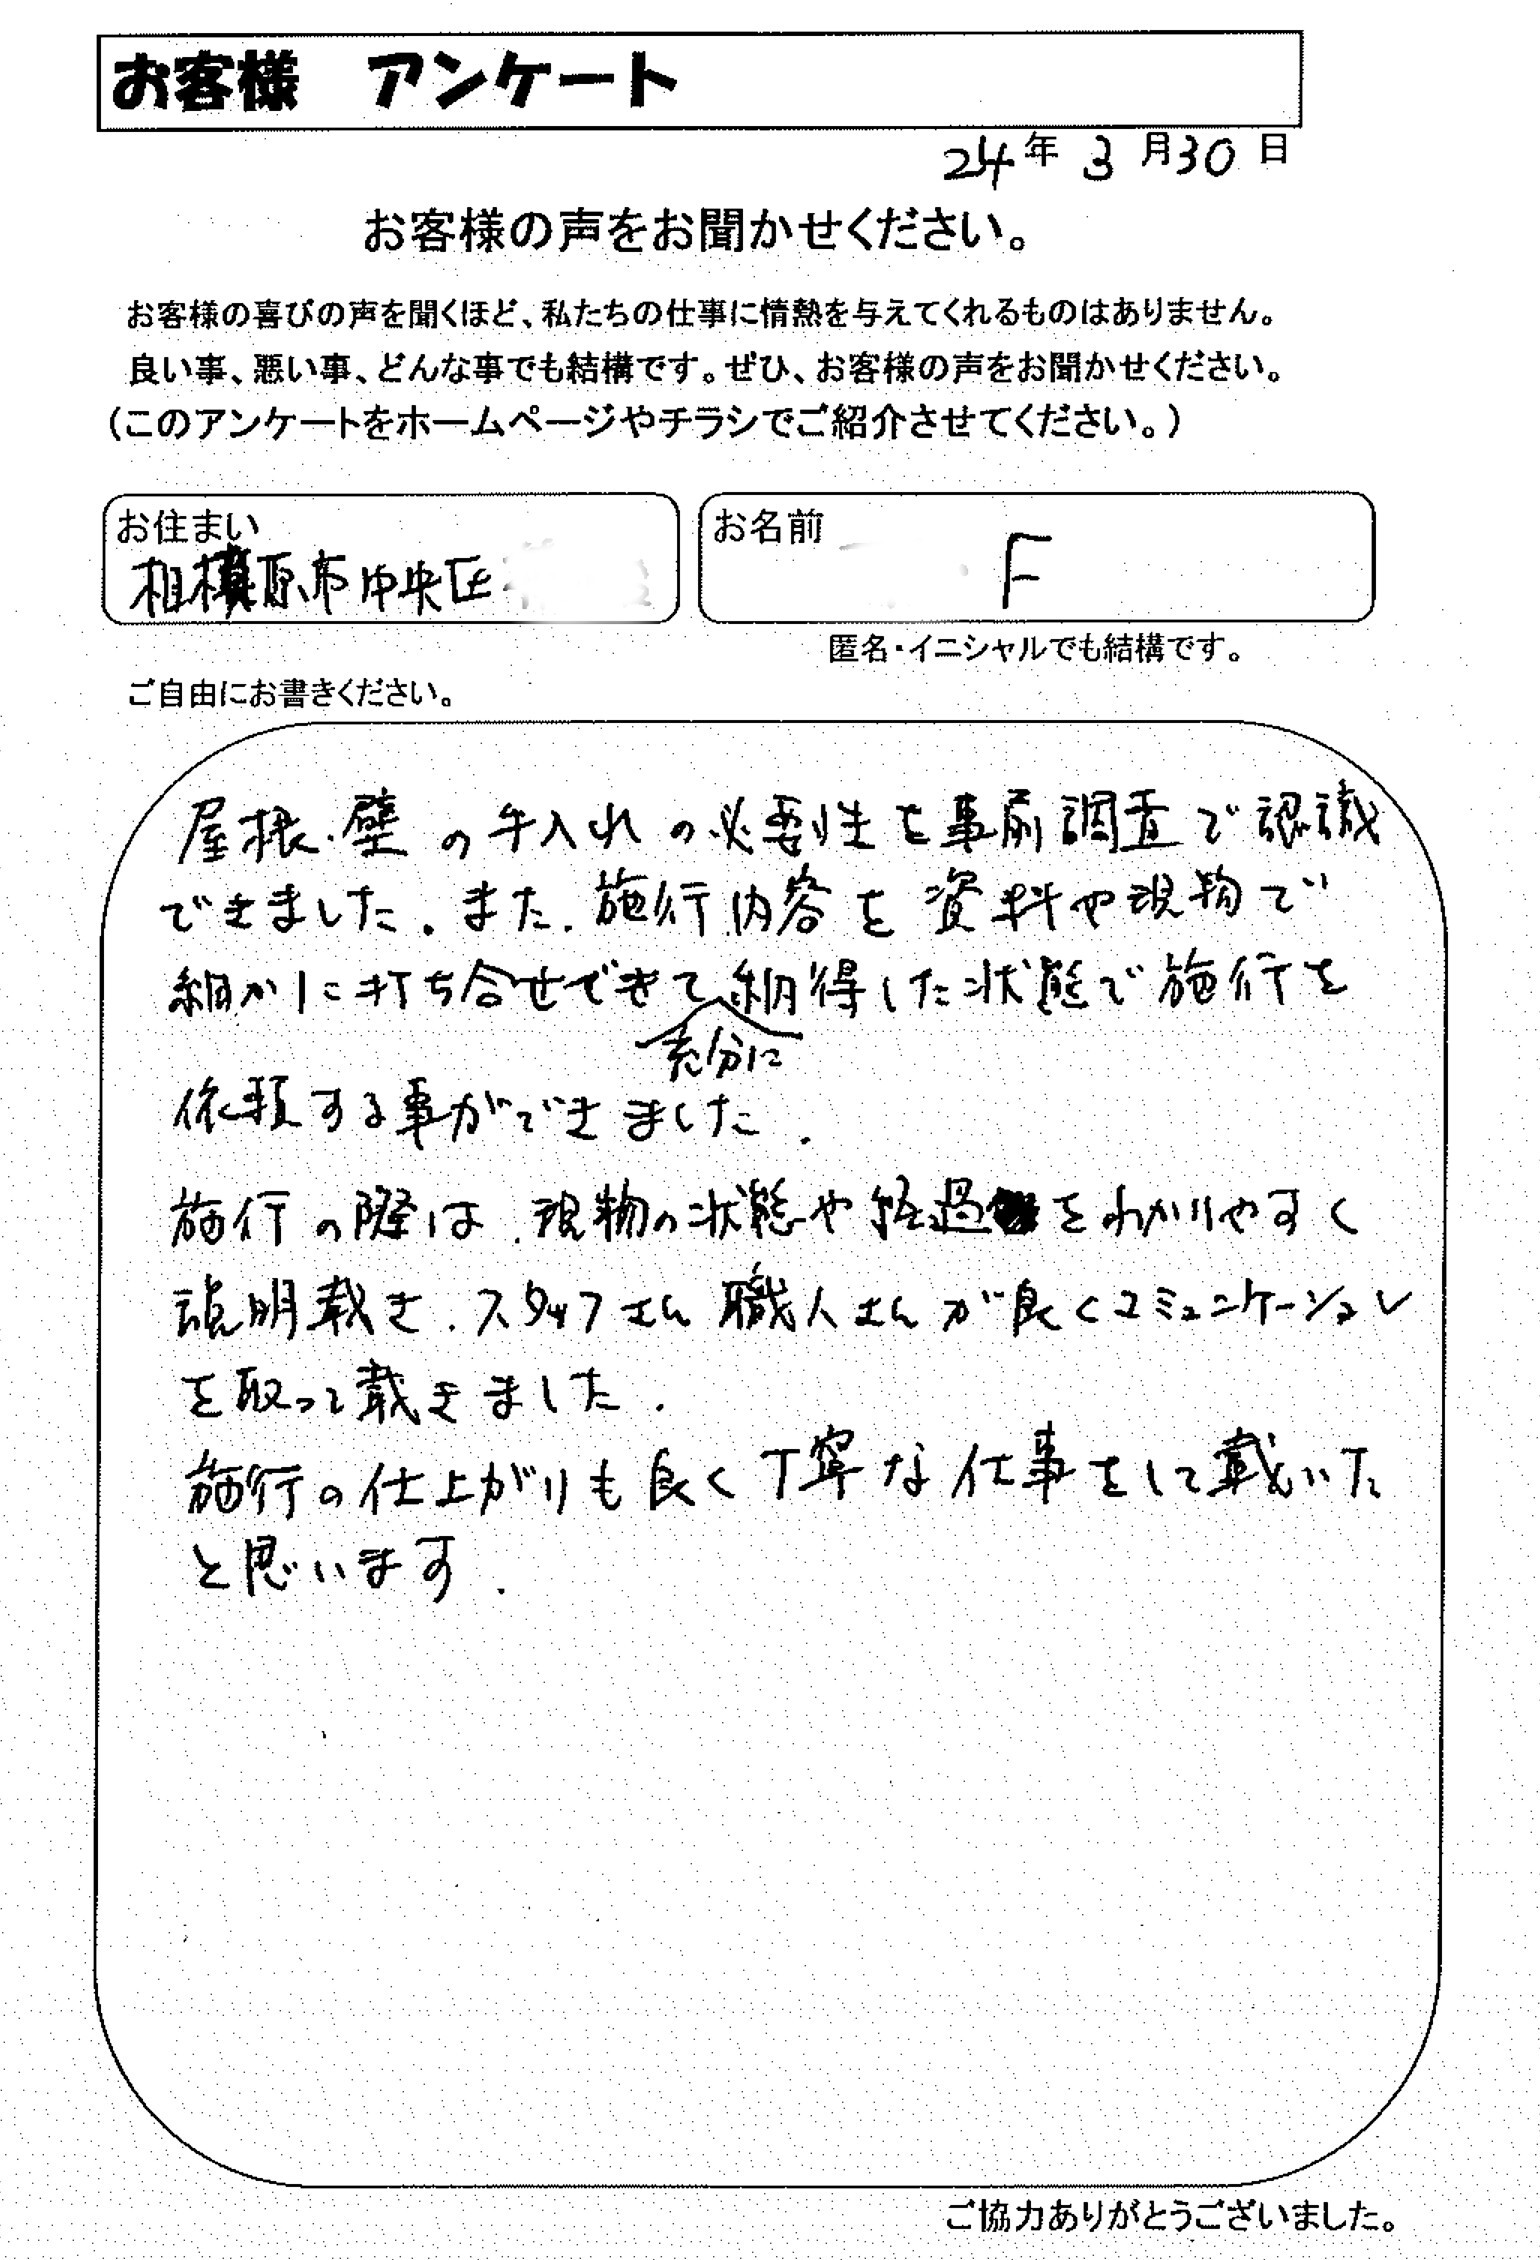 お客様 アンケート
24年 3月30日
お客様の声をお聞かせください。
お客様の喜びの声を聞くほど、私たちの仕事に情熱を与えてくれるものはありません。
良い事、悪い事、どんな事でも結構です。ぜひ、お客様の声をお聞かせください。
(このアンケートをホームページやチラシでご紹介させてください。)
お住まい
相模原市中央区
お名前
F
匿名・イニシャルでも結構です。
ご自由にお書きください。
屋根・壁の手入れの必要性を事前調査で認識
できました。また、施行内容を資料や現物で
細かに打ち合せできて納得した状態で施行を
充分に
依頼する事ができました。
施行の際は、現物の状態や経過をわかりやすく
説明戴き、スタッフさん職人さんが良くコミュニケーション
を取って戴きました。
施行の仕上がりも良く丁寧な仕事をして戴いた
と思います。
ご協力ありがとうございました。